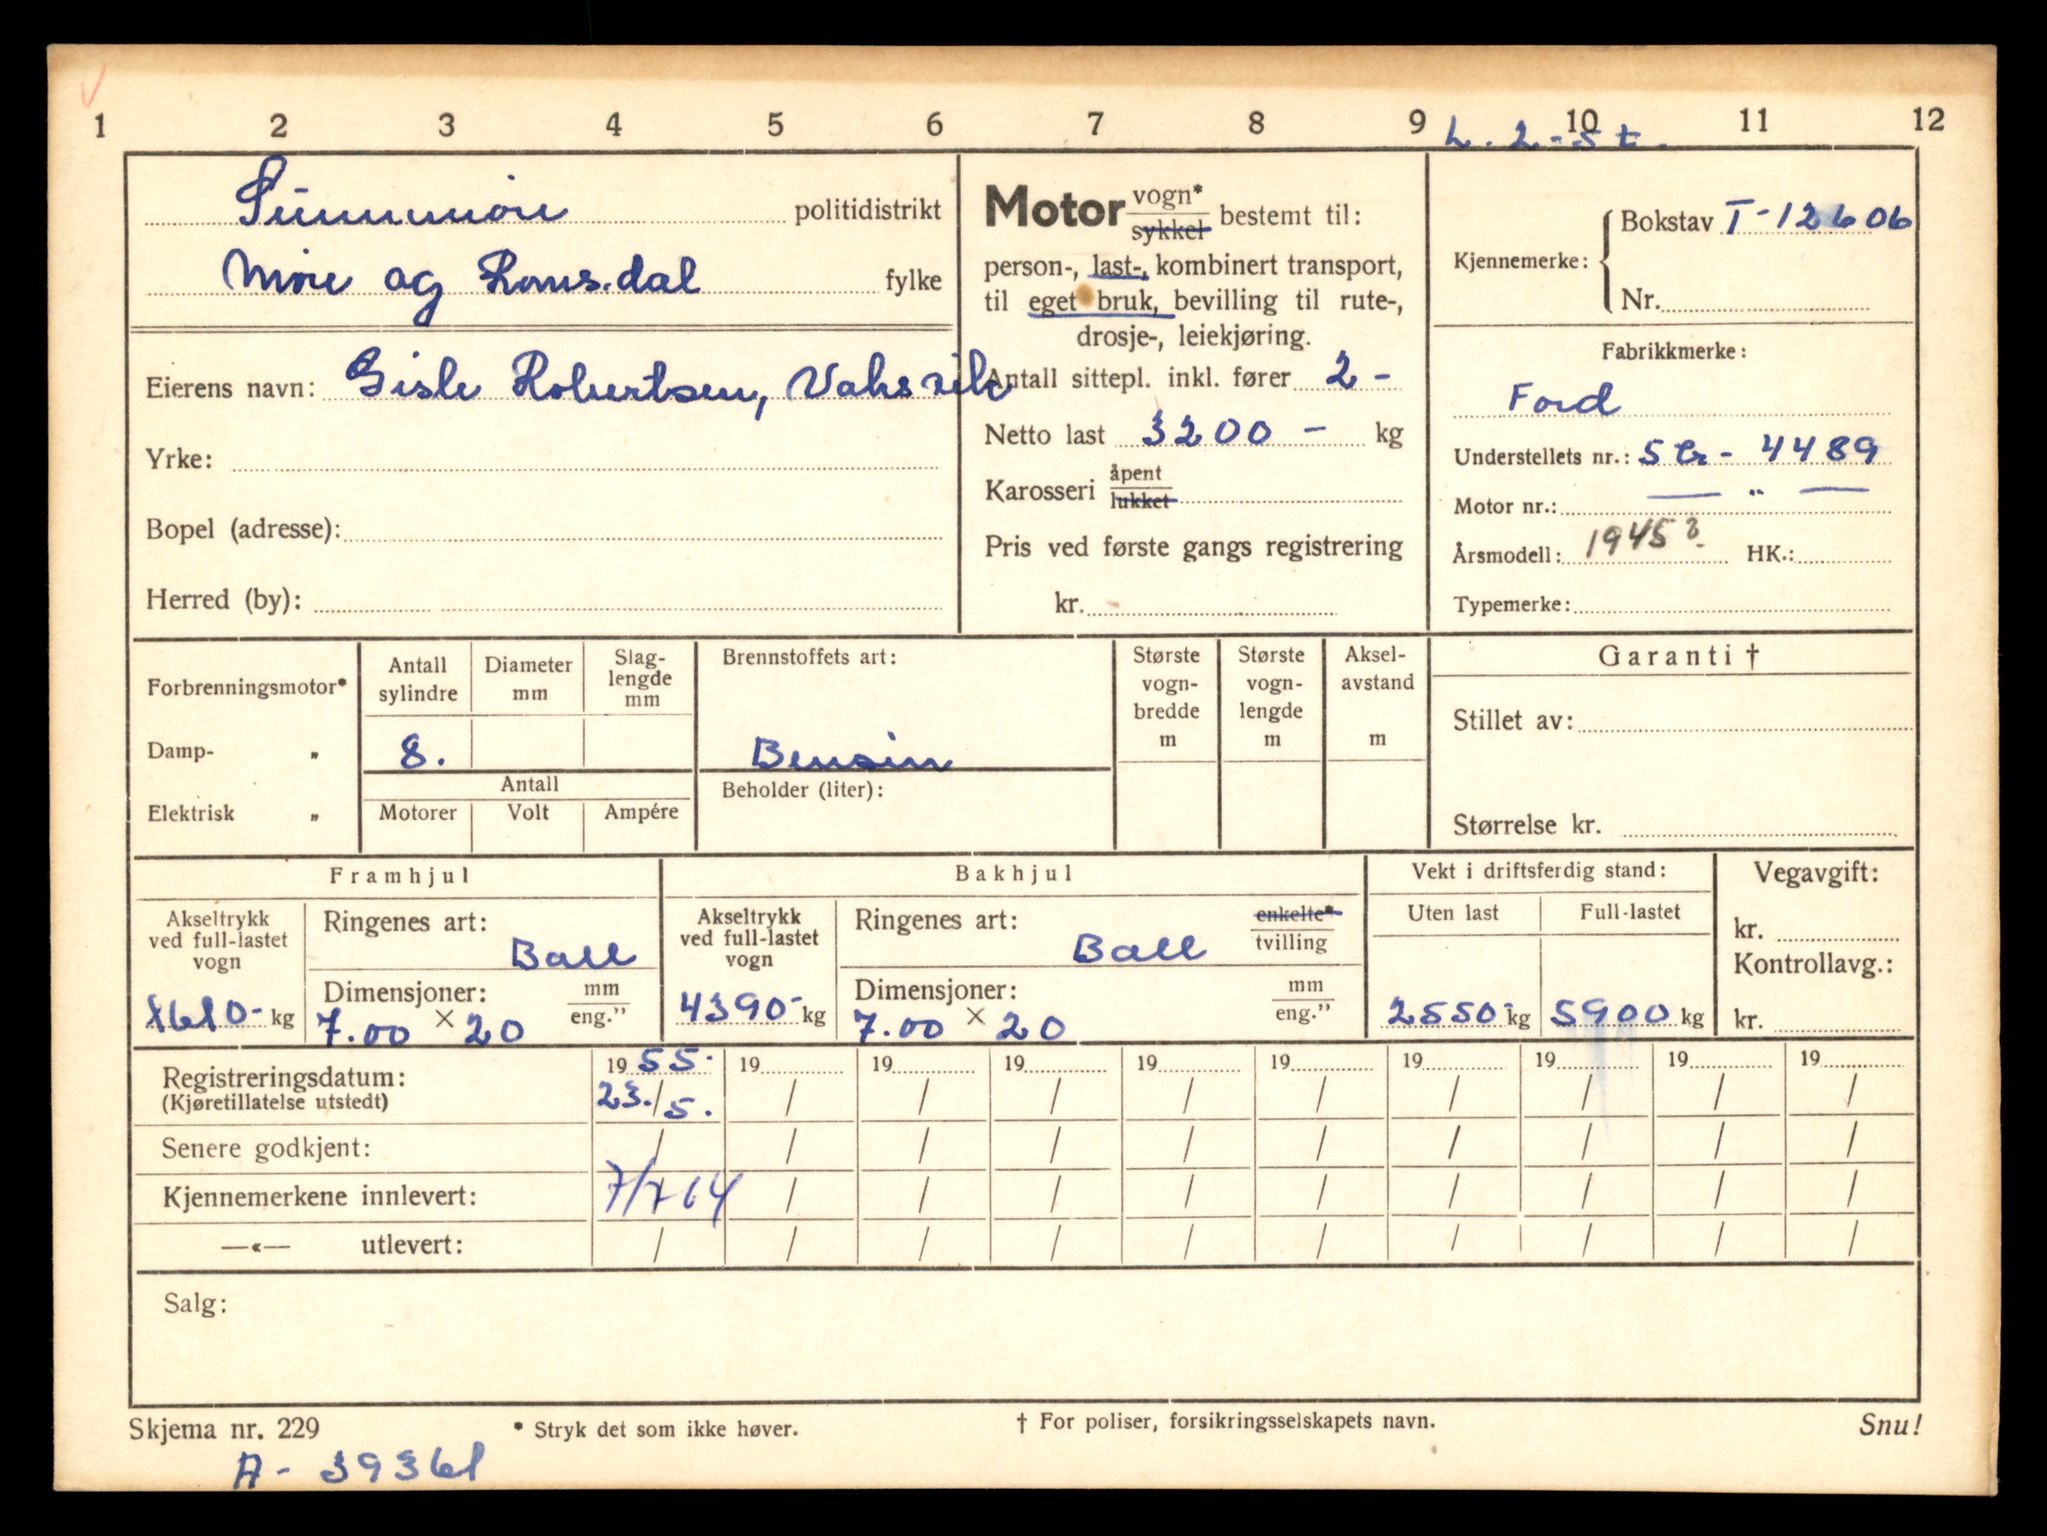 1 2 3 4 5 6 7 8 9 10 11 12
L. 2 - st.
Sunnmøre politidistrikt
Møre og Romsdal fylke
Eierens navn: Gisle Robertsen, Vaksvik
Yrke:
Bopel (adresse):
Herred (by):
Motor vogn* sykkel bestemt til:
person-, last-, kombinert transport,
til eget bruk, bevilling til rute-,
drosje-, leiekjøring.
Antall sittepl. inkl. fører 2 -
Netto last 3200 - kg
Karosseri åpent lukket
Pris ved første gangs registrering
kr.
Kjennemerke: Bokstav T-12606
Nr.
Fabrikkmerke:
Ford
Understellets nr.: 4489
Motor nr.: — " —
Årsmodell: 1945? HK.:
Typemerke:
Forbrenningsmotor*
Damp- "
Elektrisk "
Antall sylindre
Diameter mm
Slag-
lengde
mm
8.
Antall
Motorer Volt Ampére
Brennstoffets art:
Bensin
Beholder (liter):
Største
vogn-
bredde
m
Største
vogn-
lengde
m
Aksel-
avstand
m
Garanti †
Stillet av:
Størrelse kr.
Framhjul
Akseltrykk
ved full-lastet
vogn
kg
Ringenes art:
Ball
Dimensjoner: mm
7.00 × 20 eng."
Bakhjul
Akseltrykk
ved full-lastet
vogn
4390- kg
Ringenes art: enkelte*
Ball tvilling
Dimensjoner: mm
7.00 × 20 eng."
Vekt i driftsferdig stand:
Uten last Full-lastet
2550- kg 5900 kg
Vegavgift:
kr.
Kontrollavg.:
kr.
Registreringsdatum: 19 55. 19 19 19 19 19 19 19 19 19
(Kjøretillatelse utstedt) 23./5. / / / / / / / / /
Senere godkjent: / / / / / / / / / /
Kjennemerkene innlevert: 7/7 64 / / / / / / / / /
—«— utlevert: / / / / / / / / / /
Salg:
Skjema nr. 229 * Stryk det som ikke høver. † For poliser, forsikringsselskapets navn. Snu!
A - 39361